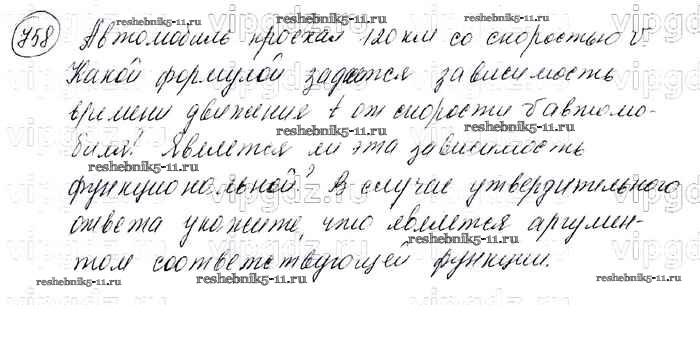 758 Автомобиль проехал 120 км со скоростью v
Какой формулой задается зависимость
времени движения t от скорости v автомо-
биля? Является ли эта зависимость
функциональной? В случае утвердительного
ответа укажите, что является аргумен-
том соответствующей функции.
reshebnik5-11.ru
reshebnik5-11.ru
reshebnik5-11.ru
reshebnik5-11.ru
reshebnik5-11.ru
reshebnik5-11.ru
reshebnik5-11.ru
reshebnik5-11.ru
reshebnik5-11.ru
reshebnik5-11.ru